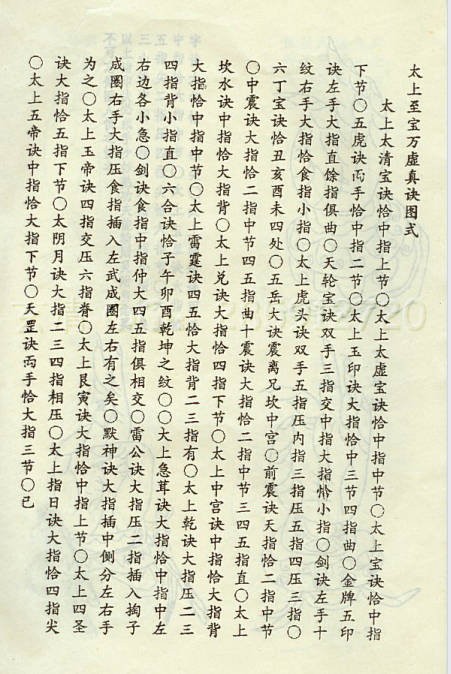 太上至宝万虚真诀图式
太上太清宝诀恰中指上节〇太上太虚宝诀恰中指中节〇太上宝诀恰中指
下节〇五虎诀両手恰中指二节〇太上玉印诀大指恰中三节四指曲〇金牌五印
诀左手大指直馀指俱曲〇天轮宝诀双手三指交中指大指恰小指〇剑诀左手十
纹右手大指恰食指小指〇太上虎头诀双手五指压内指三指压五指四压三指〇
六丁宝诀恰丑亥酉未四处〇五岳大诀震离兄坎中宫〇前震诀天指恰二指中节
〇中震诀大指恰二指中节四五指曲十震诀大指恰二指中节三四五指直〇太上
坎水诀中指恰大指背〇太上兑诀大指恰四指下节〇太上中宫诀中指恰大指背
大指恰中指中节〇太上雷霆诀四五恰大指背二三指有〇太上乾诀大指压二三
四指背小指直〇六合诀恰子午卯酉乾坤之纹〇〇大上急茸诀大指恰中指中左
右边各小急〇剑诀食指中指仲大四五指俱相交〇雷公诀大指压二指插入掏子
成圈右手大指压食指插入左武成圈左右有之矣〇默神诀大指插中侧分左右手
为之〇太上玉帝诀四指交压六指脊〇太上艮寅诀大指恰中指上节〇太上四圣
诀大指恰五指下节〇太阴月诀大指二三四指相压〇太上指日诀大指恰四指尖
〇太上五帝诀中指恰大指下节〇天罡诀両手恰大指三节〇已